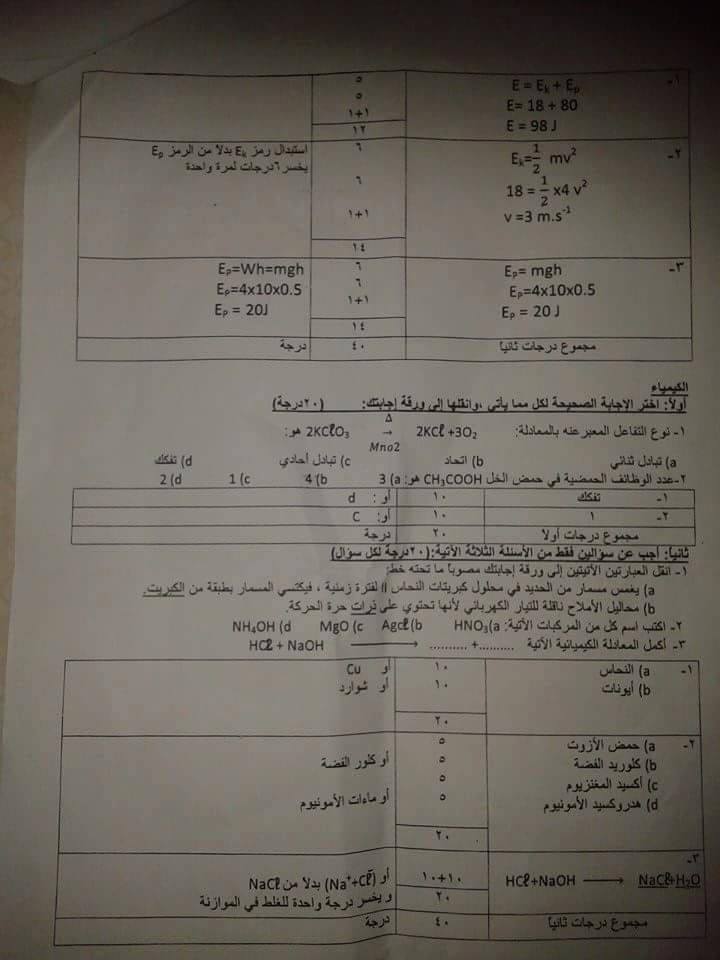 ١- E = Ek + Ep ٥
E= 18 + 80 ٥
E = 98 J ١+١
١٢
٢- Ek=1/2 mv² ٦ استبدال رمز Ek بدلاً من الرمز Ep
يخسر ٦ درجات لمرة واحدة
18 = 1/2 x4 v² ٦
v =3 m.s⁻¹ ١+١
١٤
٣- Ep= mgh ٦ Ep=Wh=mgh
Ep=4x10x0.5 ٦ Ep=4x10x0.5
Ep = 20 J ١+١ Ep = 20J
١٤
مجموع درجات ثانياً ٤٠ درجة
الكيمياء
أولاً: اختر الإجابة الصحيحة لكل مما يأتي ،وانقلها إلى ورقة إجابتك: (٢٠درجة)
١- نوع التفاعل المعبرعنه بالمعادلة: 2KCℓO₃ Δ → Mno2 2KCℓ +3O₂ هو:
a) تبادل ثنائي b) اتحاد c) تبادل أحادي d) تفكك
٢-عدد الوظائف الحمضية في حمض الخل CH₃COOH هو: a) 3 b) 4 c) 1 d) 2
١- تفكك ١٠ أو : d
٢- ١ ١٠ أو: C
مجموع درجات أولا ٢٠ درجة
ثانياً: أجب عن سؤالين فقط من الأسئلة الثلاثة الآتية:(٢٠درجة لكل سؤال)
١- انقل العبارتين الآتيتين إلى ورقة إجابتك مصوباً ما تحته خط:
a) يغمس مسمار من الحديد في محلول كبريتات النحاس II لفترة زمنية ، فيكتسي المسمار بطبقة من الكبريت.
b) محاليل الأملاح ناقلة للتيار الكهربائي لأنها تحتوي على ذرات حرة الحركة.
٢- اكتب اسم كل من المركبات الآتية: a) HNO₃ b) Agcℓ c) MgO d) NH₄OH
٣- أكمل المعادلة الكيميائية الآتية HCℓ + NaOH ⟶ ..........+ ..........
١- a) النحاس ١٠ أو Cu
b) أيونات ١٠ أو شوارد
٢٠
٢- a) حمض الأزوت ٥
b) كلوريد الفضة ٥ أو كلور الفضة
c) أكسيد المغنزيوم ٥
d) هدروكسيد الأمونيوم ٥ أو ماءات الأمونيوم
٢٠
٣-
HCℓ+NaOH ⟶ NaCℓ+H₂O ١٠+١٠ أو (Na⁺+Cℓ⁻) بدلاً من NaCℓ
٢٠ و يخسر درجة واحدة للغلط في الموازنة
مجموع درجات ثانياً ٤٠ درجة